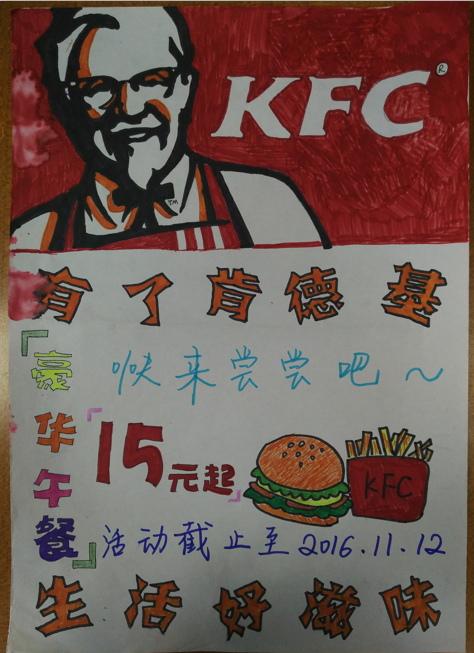 KFC®
TM
有了肯德基
快来尝尝吧～
「豪华午餐」
「15元起」
KFC
活动截止至2016.11.12
生活好滋味